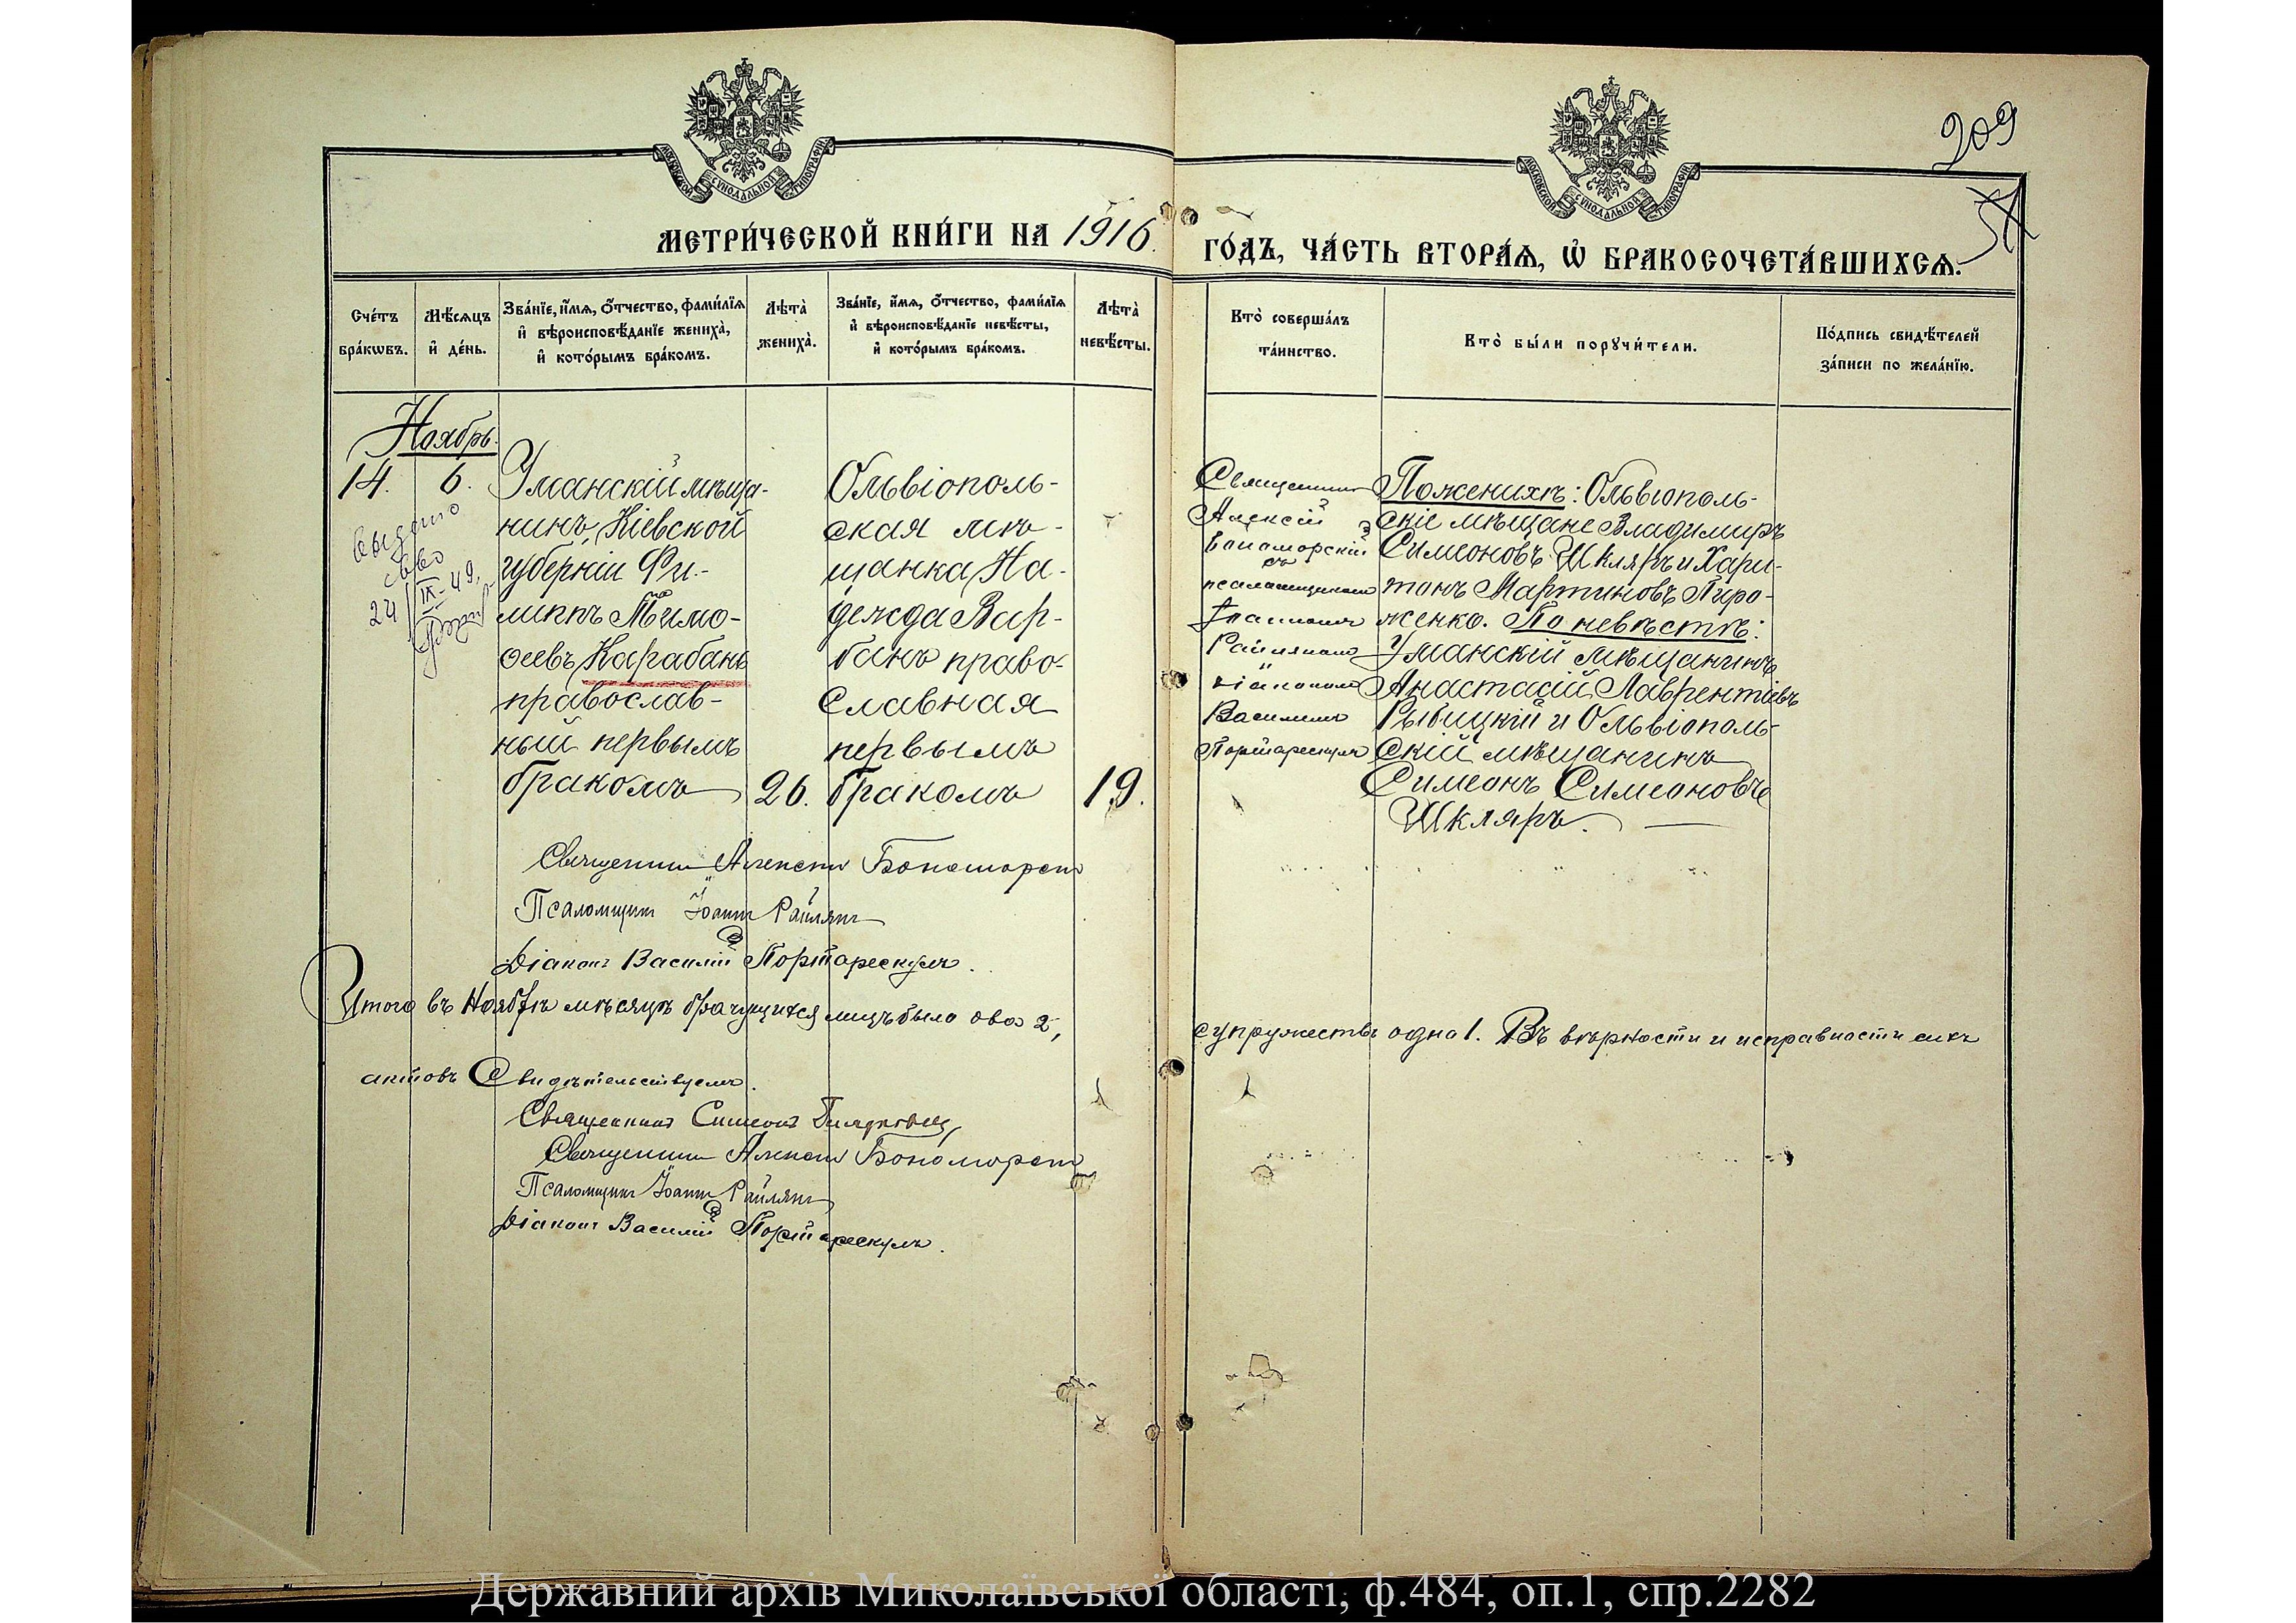 209
МОСКОВСКОЙ СУНОДАЛЬНОЙ ТИПОГРАФІИ
МОСКОВСКОЙ СУНОДАЛЬНОЙ ТИПОГРАФІИ
МЕТРИ́ЧЕСКОЙ КНИ́ГИ НА 1916
ГО́ДЪ, ЧА́СТЬ ВТОРА́Ѧ, Ѡ҆ БРАКОСОЧЕТА́ВШИХСѦ.
Сче́тъ бра́кѡвъ.
Мѣ́сѧцъ и҆ де́нь.
Зва́нїе, и҆́мѧ, о҆́тчество, фами́лїѧ и҆ вѣроисповѣ́данїе жениха̀, и҆ кото́рымъ бра́комъ.
Лѣта̀ жениха̀.
Зва́нїе, и҆́мѧ, о҆́тчество, фами́лїѧ и҆ вѣроисповѣ́данїе невѣ́сты, и҆ кото́рымъ бра́комъ.
Лѣта̀ невѣ́сты.
Кто̀ соверша́лъ та́инство.
Кто̀ бы́ли порꙋчи́тели.
По́дпись свидѣ́телей за́писи по жела́нїю.
Ноябрь.
14.
6.
выдано
24 IX-49.
Уманскій мѣща-
нинъ, Кіевской
губерніи Фи-
липпъ Тимо-
ѳеевъ Карабанъ
православ-
ный первымъ
бракомъ
26.
Ольвіополь-
ская мѣ-
щанка На-
дежда Вар-
банъ право-
славная
первымъ
бракомъ
19.
Священникъ
Алексій
Бѣломорскій
съ
псаломщикомъ
Іоанномъ
Райляномъ
діакономъ
Василіемъ
Портарескулъ
По женихѣ: Ольвіополь-
скіе мѣщане Владимиръ
Симеоновъ Шкляръ и Хари-
тонъ Мартиновъ Пиро-
женко. По невѣстѣ:
Уманскій мѣщанинъ
Анастасій Лаврентіевъ
Рыбицкій и Ольвіополь-
скій мѣщанинъ
Симеонъ Симеоновъ
Шкляръ.
Священникъ Алексій
Псаломщикъ Іоаннъ Райлянъ
Діаконъ Василій Портарескулъ.
Итого въ Ноябрѣ мѣсяцѣ брачущихся лицъ было два 2,
супружества одна 1. Въ вѣрности и исправности сихъ
актовъ свидѣтельствуемъ.
Священникъ Симеонъ
Священникъ Алексій
Псаломщикъ Іоаннъ Райлянъ
Діаконъ Василій Портарескулъ.
Державний архів Миколаївської області; ф.484, оп.1, спр.2282